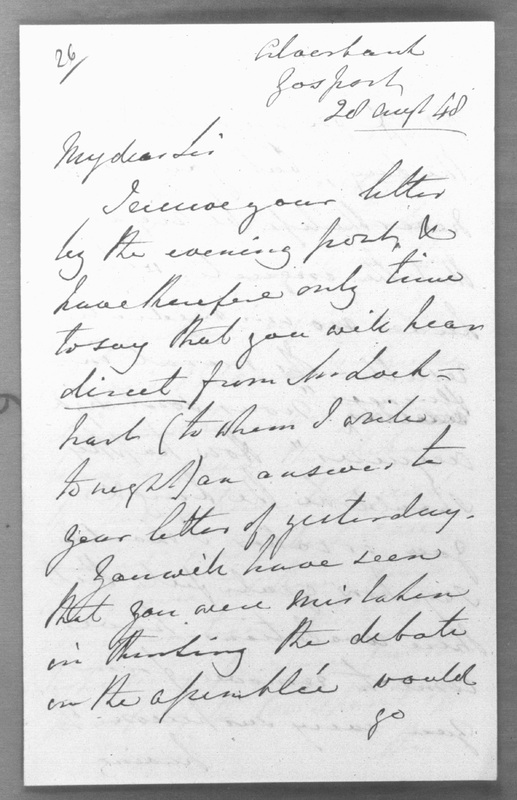 26/
Alverbank
Gosport
28 augt 48
My dear Sir
I receive your letter
by the evening post, &
have therefore only time
to say that you will hear
direct from Mr Lock=
hart (to whom I write
to night) an answer to
your letter of yesterday.
You will have seen
that you were mistaken
in thinking the debate
in the assemblée would
go